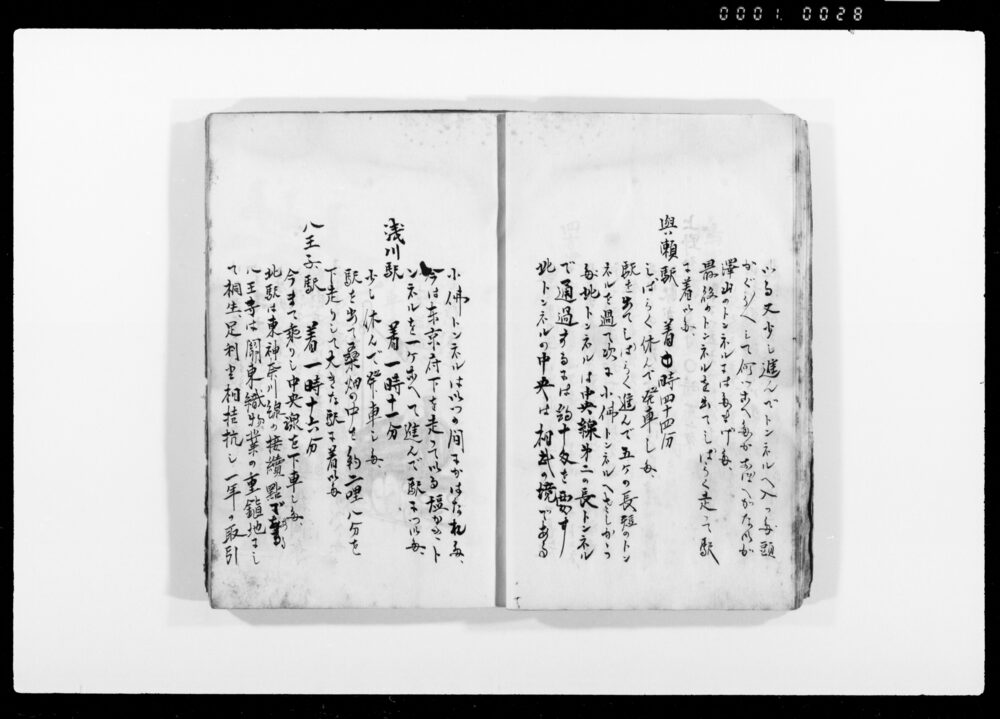 0001 0028
いる又少し進んでトンネルへ入った頭
がぐらへして何
澤山のトンネルには
最後のトンネルを出てしばらく走って駅
に着いた
與瀬駅 着 時四十四分
しばらく休んで発車した
駅を出てしばらく進んで五ヶの長短のトン
ネルを過て次に小佛トンネルへさしかかっ
た此トンネルは中央線第二の長トンネル
で通過するには約十分を要す
此トンネルの中央は相武の境である
小佛トンネルはいつの間にかはなれた、
今は東京府下を走っている短かいト
ンネルを一ヶ
て進んで駅についた、
浅川駅 着一時十一分
少し休んで発車した
駅を出て桑畑の中を約二哩八分を
下走りして大きな駅に着いた
八王子駅 着一時十六分
今まで乗りし中央線を下車した
此駅は東神奈川線の接續點である
八王子は関東織物業の重鎮地にし
て桐生、足利と相拮抗し一年の取引